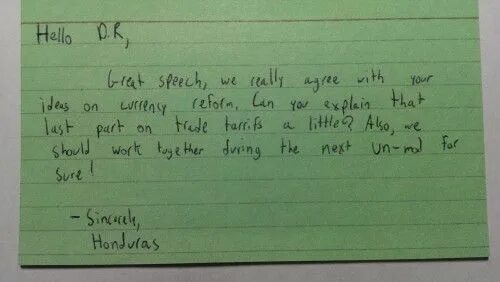 Hello D.R,
Great speech, we really agree with your
ideas on currency reform. Can you explain that
last part on trade tarrifs a little? Also, we
should work together during the next un-mod for
sure!
- Sincerely,
Honduras